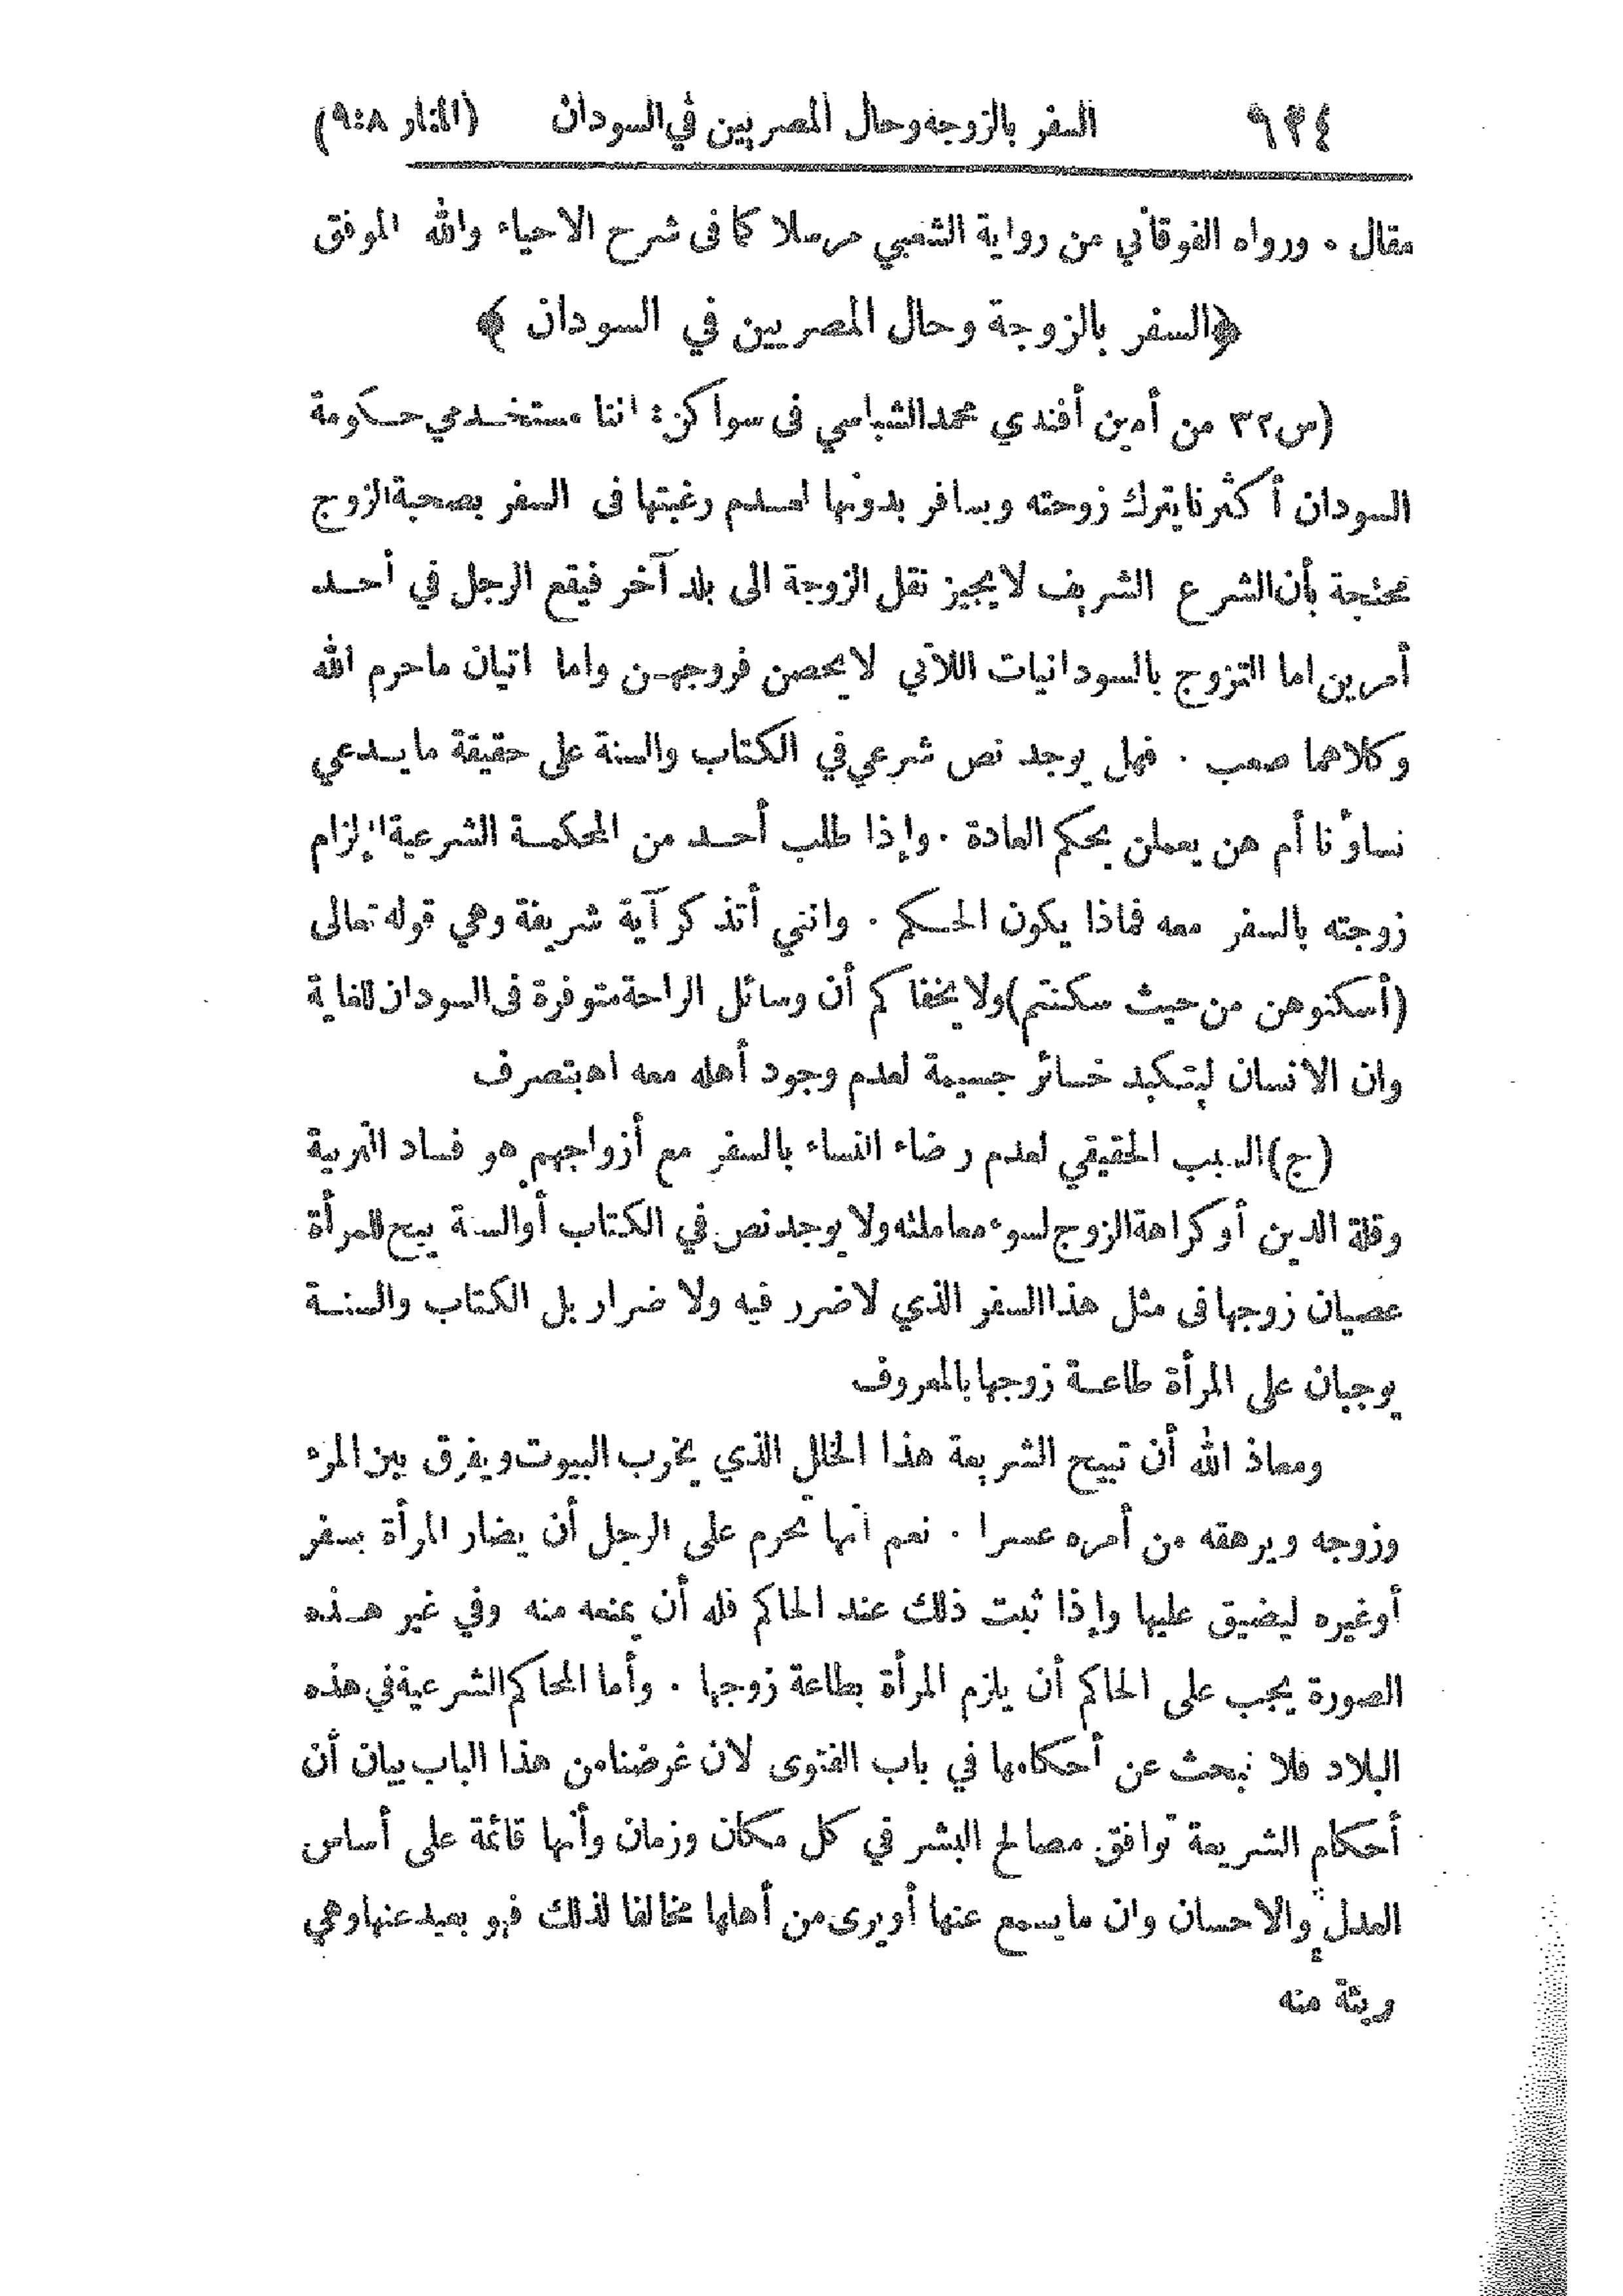 ٩٣٤ السفر بالزوجه وحال المصريين في السودان (المنار ٩:٨)
مقال ٠ ورواه الفوقاني من رواية الشعبي مرسلا كما فى شرح الاحياء والله الموفق
﴿السفر بالزوجة وحال المصريين في السودان ﴾
(س٣٢ من أمين أفندي محمد الشباسي فى سواكن: اننا مستخدمي حكومة
السودان أكثرنا يترك زوجته ويسافر بدونها لعدم رغبتها فى السفر بصحبة الزوج
محتجة بأن الشرع الشريف لا يجيز نقل الزوجة الى بلد آخر فيقع الرجل في أحد
أمرين اما التزوج بالسودانيات اللآتي لا يحصن فروجهن واما اتيان ما حرم الله
وكلاهما صعب ٠ فهل يوجد نص شرعي في الكتاب والسنة على حقيقة ما يدعي
نساؤنا أم هن يعملن بحكم العادة ٠ وإذا طلب أحد من المحكمة الشرعية إلزام
زوجته بالسفر معه فماذا يكون الحكم ٠ وانني أتذكر آية شريفة وهي قوله تعالى
(أسكنوهن من حيث سكنتم) ولا يخفاكم أن وسائل الراحة متوفرة فى السودان للغاية
وان الانسان ليتكبد خسائر جسيمة لعدم وجود أهله معه اه بتصرف
(ج) السبب الحقيقي لعدم رضاء النساء بالسفر مع أزواجهم هو فساد التربية
وقلة الدين أو كراهة الزوج لسوء معاملته ولا يوجد نص في الكتاب أو السنة يبيح للمرأة
عصيان زوجها فى مثل هذا السفر الذي لا ضرر فيه ولا ضرار بل الكتاب والسنة
يوجبان على المرأة طاعة زوجها بالمعروف
ومعاذ الله أن تبيح الشريعة هذا الخلل الذي يخرب البيوت ويفرق بين المرء
وزوجه ويرهقه من أمره عسرا ٠ نعم أنها تحرم على الرجل أن يضار المرأة بسفر
أو غيره ليضيق عليها وإذا ثبت ذلك عند الحاكم فله أن يمنعه منه وفي غير هذه
الصورة يجب على الحاكم أن يلزم المرأة بطاعة زوجها ٠ وأما المحاكم الشرعية في هذه
البلاد فلا نبحث عن أحكامها في باب الفتوى لان غرضنا من هذا الباب بيان أن
أحكام الشريعة توافق مصالح البشر في كل مكان وزمان وأنها قائمة على أساس
العدل والاحسان وان ما يسمع عنها أو يرى من أهلها مخالفا لذلك فهو بعيد عنها وهي
بريئة منه